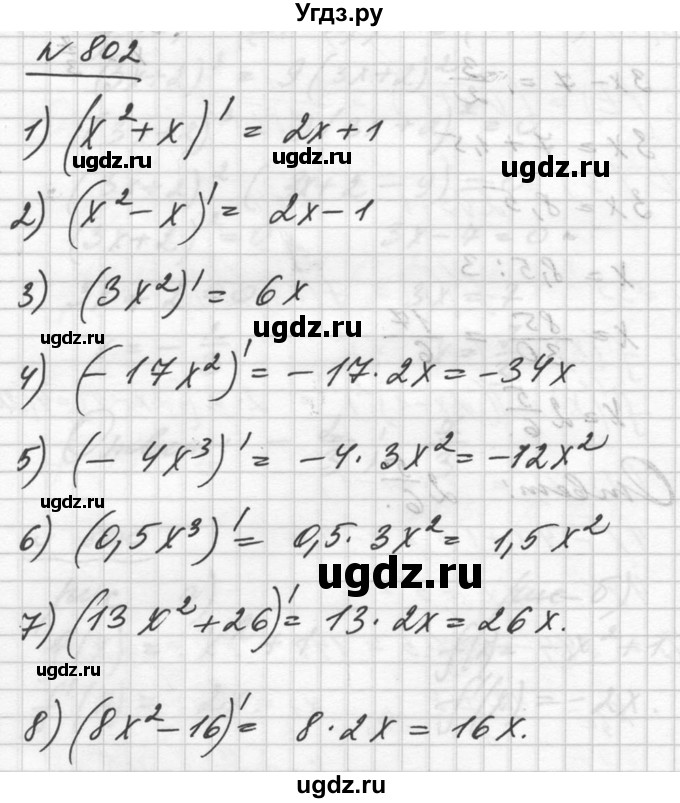 Угдз.ру
N 802
1) (x²+x)' = 2x+1
ugdz.ru ugdz.ru ugdz.ru
2) (x²-x)' = 2x-1
3) (3x²)' = 6x
ugdz.ru ugdz.ru
4) (-17x²)' = -17·2x = -34x
5) (-4x³)' = -4·3x² = -12x²
ugdz.ru
6) (0,5x³)' = 0,5·3x² = 1,5x²
ugdz.ru
7) (13x²+26)' = 13·2x = 26x.
ugdz.ru
8) (8x²-16)' = 8·2x = 16x.
ugdz.ru